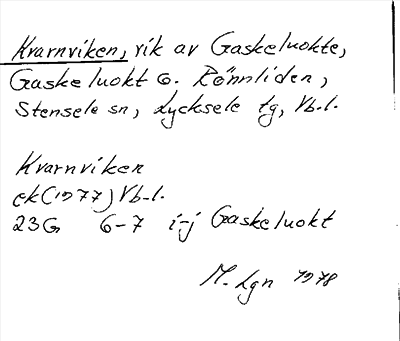 Kvarnviken, vik av Gaskeluokte,
Gaskeluokt o. Rönnliden,
Stensele sn, Lycksele tg, Vb.l.
Kvarnviken
ek(1977) Vb.l.
23G 6-7 i-j Gaskeluokt
M. Lgn 1978